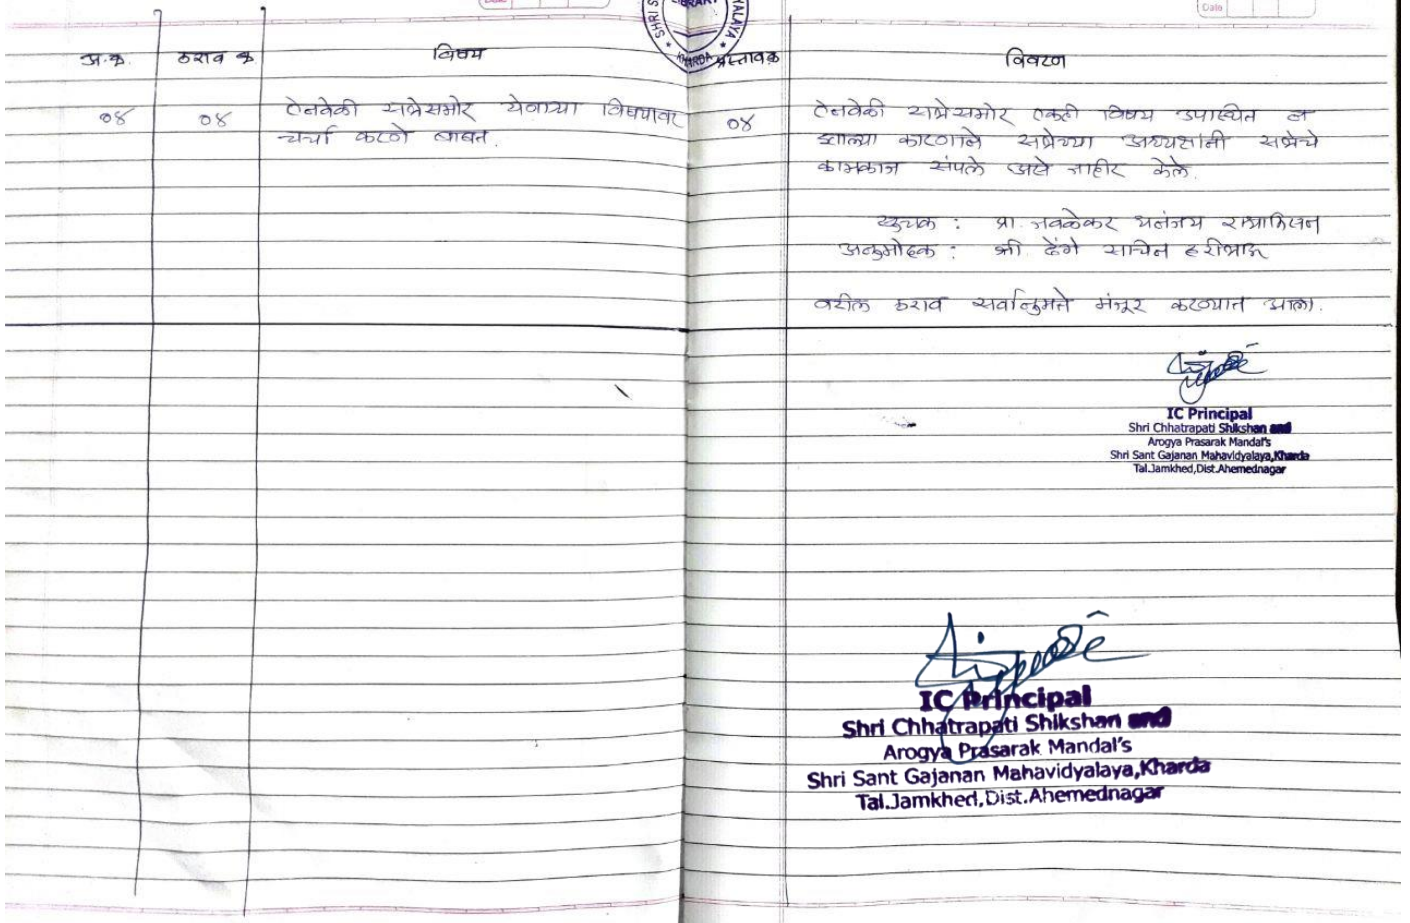 Date
Date
SHRI S
LIBRARY
ALAYA
KHARDA
अ.क्र.
ठराव क्र
विषय
प्रस्तावक
विवरण
०४
०४
ऐनवेळी सभेसमोर येणाऱ्या विषयावर
चर्चा करणे बाबत.
०४
ऐनवेळी सभेसमोर एकही विषय उपास्थित न
झाल्या कारणाने सभेच्या अध्यक्षांनी सभेचे
कामकाज संपले असे जाहीर केले.
सूचक : प्रा. जवळेकर धनंजय
अनुमोदक : श्री. ढेंगे सचिन हरीभाऊ
वरील ठराव सर्वानुमते मंजूर करण्यात आला.
IC Principal
Shri Chhatrapati Shikshan and
Arogya Prasarak Mandal's
Shri Sant Gajanan Mahavidyalaya,Kharda
Tal.Jamkhed,Dist.Ahemednagar
IC Principal
Shri Chhatrapati Shikshan and
Arogya Prasarak Mandal's
Shri Sant Gajanan Mahavidyalaya,Kharda
Tal.Jamkhed,Dist.Ahemednagar